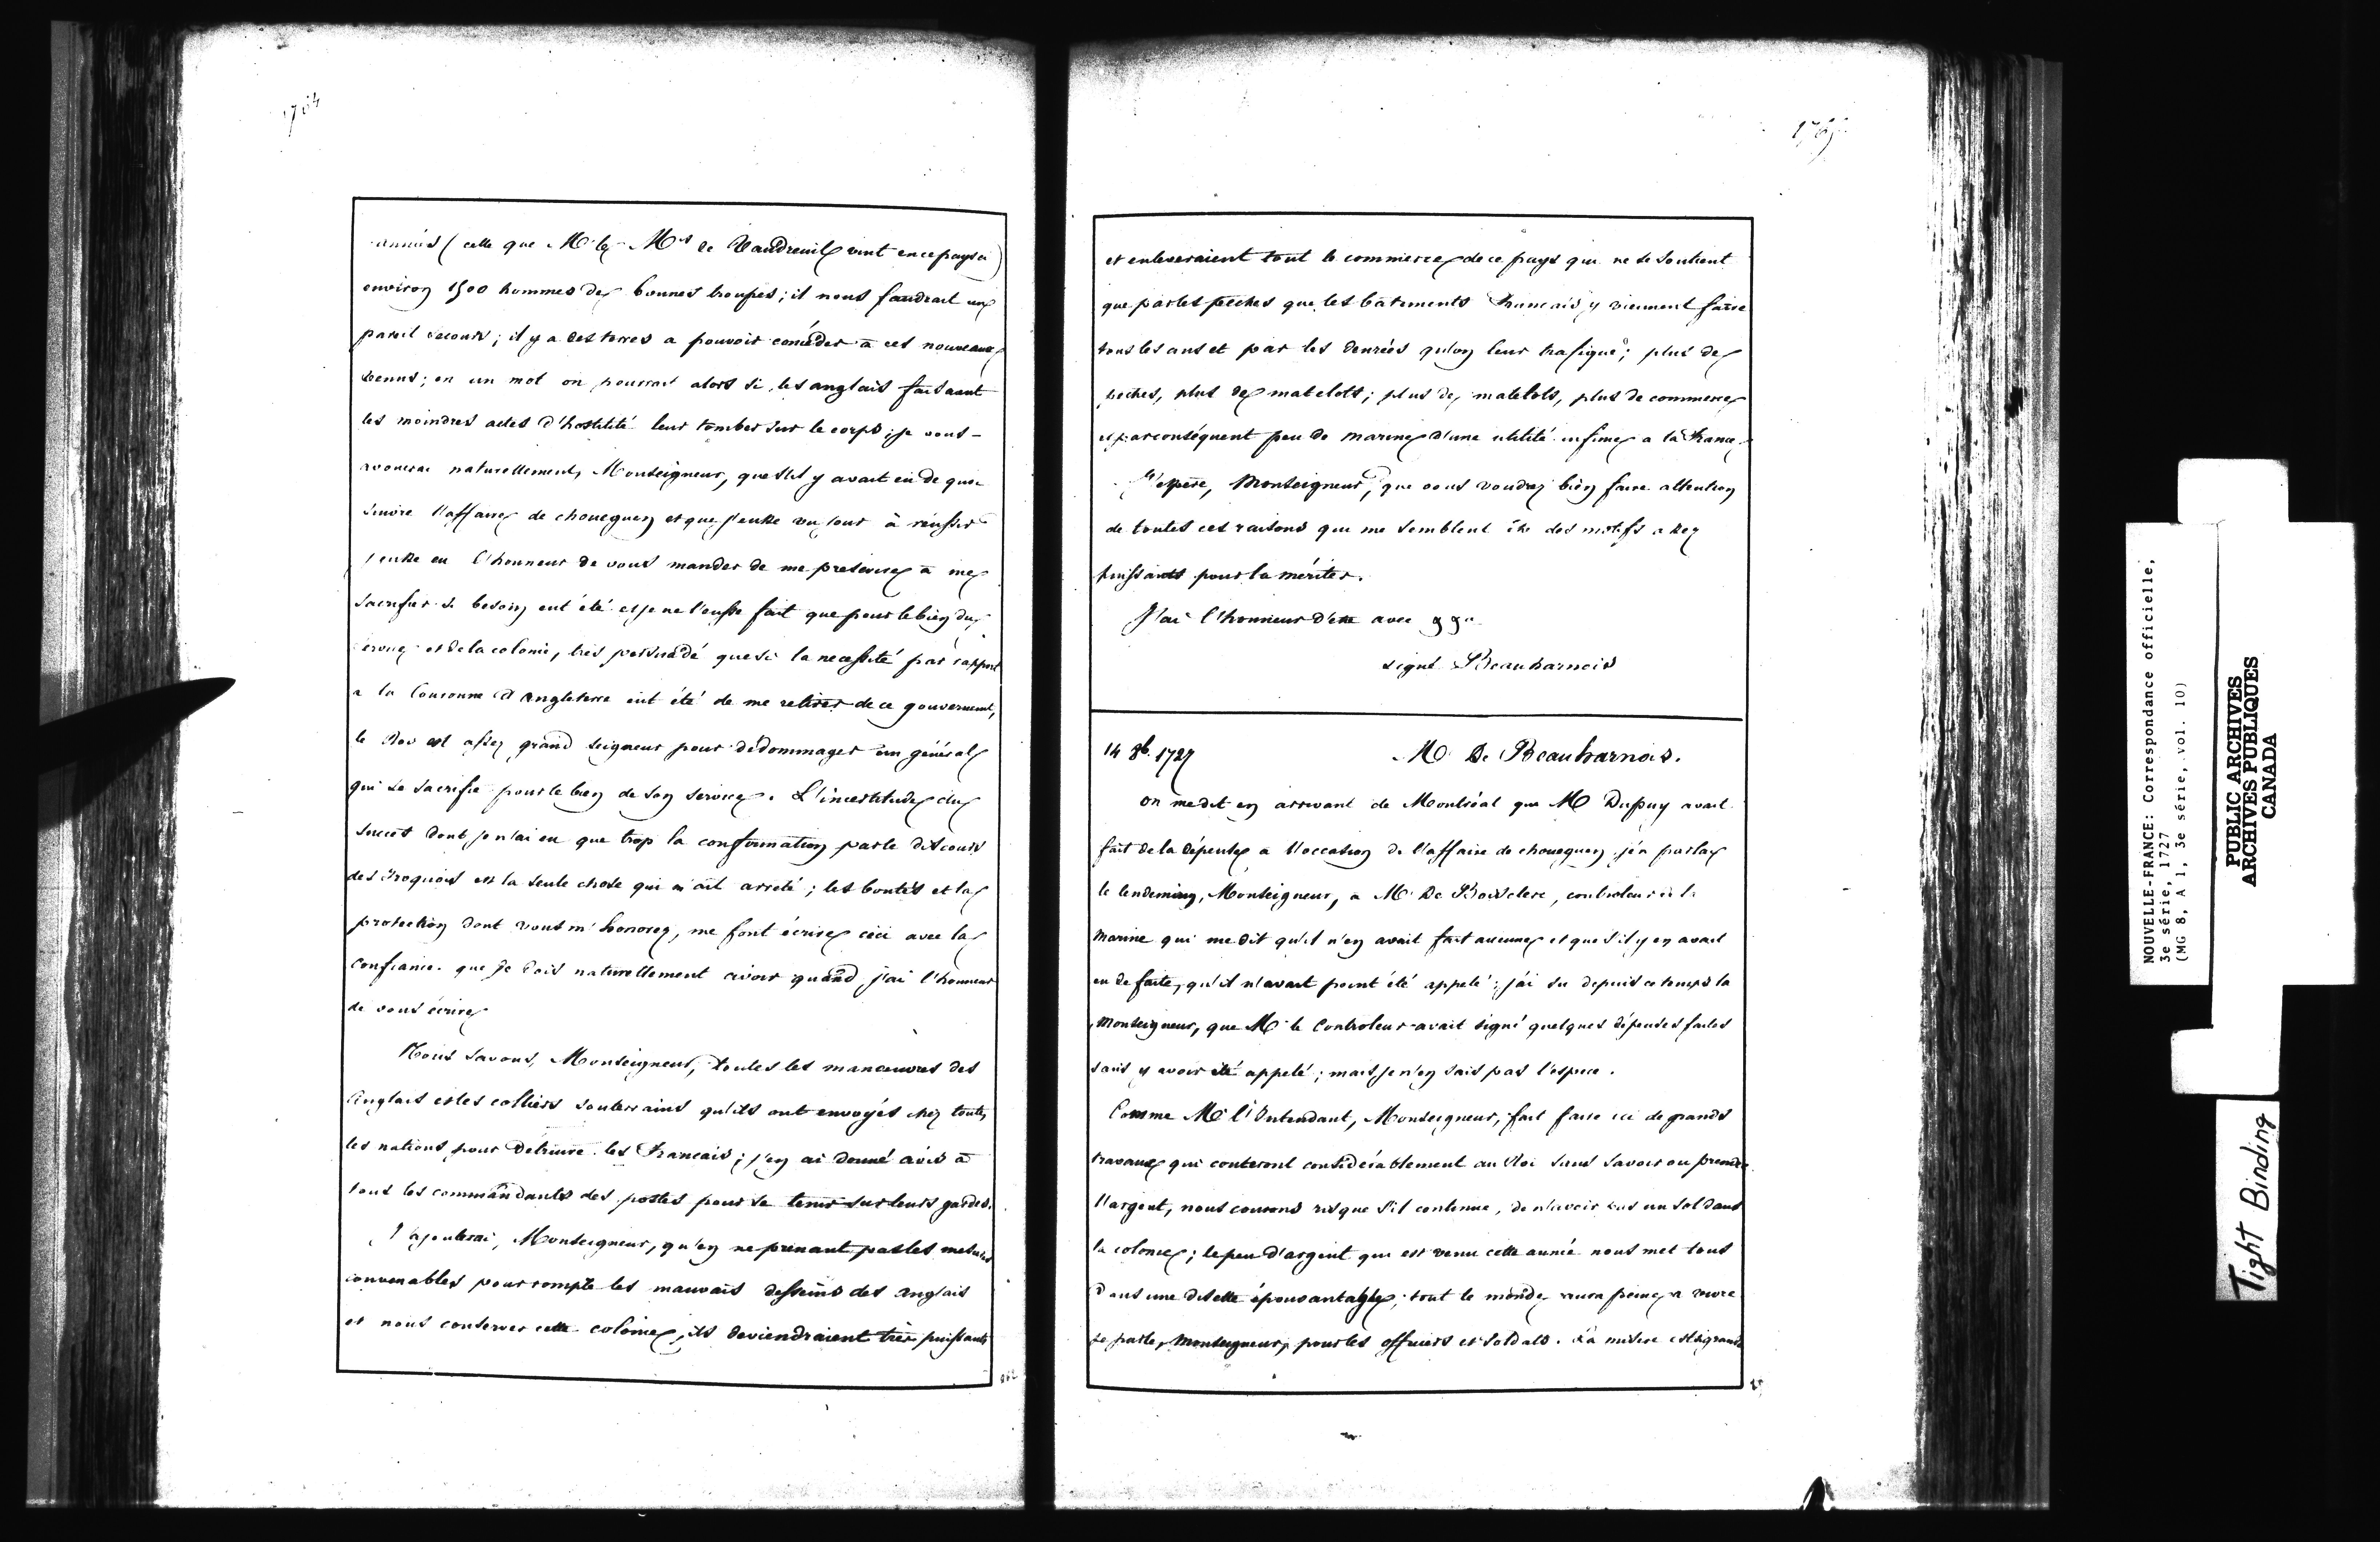 1764
année (celle que M. le Mis de Vaudreuil vint en ce pays ci)
environ 1500 hommes de bonnes troupes; il nous faudrait un
pareil secours; il y a des terres a pouvoir concéder à ces nouveaux
venus; en un mot on pourrait alors si les anglais faisaient
les moindres actes d'hostilité leur tomber sur le corps; je vous
avouerai naturellement, Monseigneur, que s'il y avait eu de quoi
suivre l'affaire de choueguen et que j'eusse vu jour à réussir
j'eusse eu l'honneur de vous mander de me prescrire à me
sacrifier si besoin eut été et je ne l'eusse fait que pour le bien du
service et de la colonie, très persuadé que si la necessité par rapport
a la Couronne d'angleterre eut été de me retirer de ce gouvernement,
le Roi est assez grand seigneur pour dédommager un général
qui se sacrifie pour le bien de son service. L'incertitude du
succès dont je n'ai eu que trop la confirmation par le discours
des Iroquois est la seule chose qui m'ait arreté; les bontés et la
protection dont vous m'honorez, me font écrire ceci avec la
confiance que je dois naturellement avoir quand j'ai l'honneur
de vous écrire
Nous savons, Monseigneur, toutes les manœuvres des
Anglais et les colliers souterrains qu'ils ont envoyés chez toutes
les nations pour détruire les Francais; j'en ai donné avis à
tous les commandants des postes pour se tenir sur leurs gardes.
J'ajouterai, Monseigneur, qu'en ne prenant pas les mesures
convenables pour rompre les mauvais desseins des anglais
et nous conserver cette colonie, ils deviendraient très puissants
1765
et enleveraient tout le commerce de ce pays qui ne se soutient
que par les pèches que les bâtiments Francais y viennent faire
tous les ans et par les denrées qu'on leur trafique; plus de
pèches, plus de matelots; plus de matelots, plus de commerce
et par conséquent peu de marine d'une utilité infinie a la France.
J'espère, Monseigneur, que vous voudrez bien faire attention
de toutes ces raisons qui me semblent être des motifs assez
puissants pour la mériter.
J'ai l'honneur d'etre avec
signé Beauharnois
14 8b. 1727 M. De Beauharnois.
on me dit en arrivant de Montréal que M. Dupuy avait
fait de la dépense a l'occasion de l'affaire de choueguen j'en parlai
le lendemain, Monseigneur, a M. De Boisclerc, controleur de la
marine qui me dit qu'il n'en avait fait aucune et que s'il y en avait
eu de faite, qu'il n'avait point été appelé; j'ai su depuis ce temps la
Monseigneur, que M. le Controleur avait signé quelques dépenses faites
sans y avoir été appelé; mais je n'en sais pas l'espece.
Comme M. l'Intendant, Monseigneur, fait faire ici de grands
travaux qui couteront considérablement au Roi sans savoir ou prendre
l'argent, nous courons risque s'il continue, de n'avoir pas un sol dans
la colonie; le peu d'argent qui est venu cette année nous met tous
dans une disette épouvantable; tout le monde aura peine a vivre
je parle, Monseigneur, pour les officiers et soldats. La misère est si grande
NOUVELLE-FRANCE: Correspondance officielle,
3e série, 1727
(MG 8, A 1, 3e série, vol. 10)
PUBLIC ARCHIVES
ARCHIVES PUBLIQUES
CANADA
Tight Binding